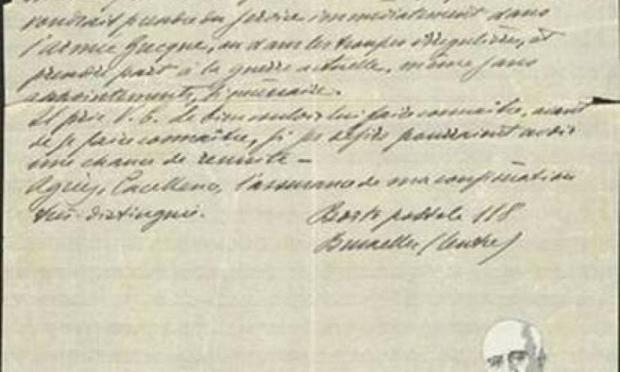 voudrait prendre du service immédiatement dans
l'armée Grecque, ou dans les troupes irrégulières, et
prendre part à la guerre actuelle, même sans
appointements,
Il prie V. E. de bien vouloir lui faire connaître, avant
de se faire connaître, si ses désirs pourraient avoir
une chance de réussite —
Agréez, Excellence, l'assurance de ma considération
très distinguée.
Boste postale 118
Bruxelles (Centre)